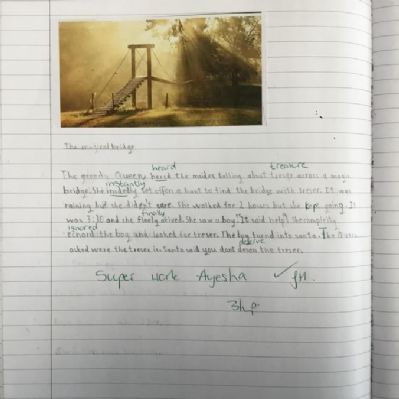 The magical bridge
heard treasure
The greedy Queen hered the maides talking about tresre across a magic
instantly
bridge. She insdetly set offon a hunt to find the bridge with treser. It was
raining but she did'ent care. She walked for 2 hours but she kept going. It
finally
was 3:30 and she finely arived. She saw a boy "It said help". She complety
ignored
ecnord the boy and looked for treser. The boy turnd into santa. The Queen
deserve
asked were the treser is. Santa said you dont desev the treser.
Super work Ayesha ✓